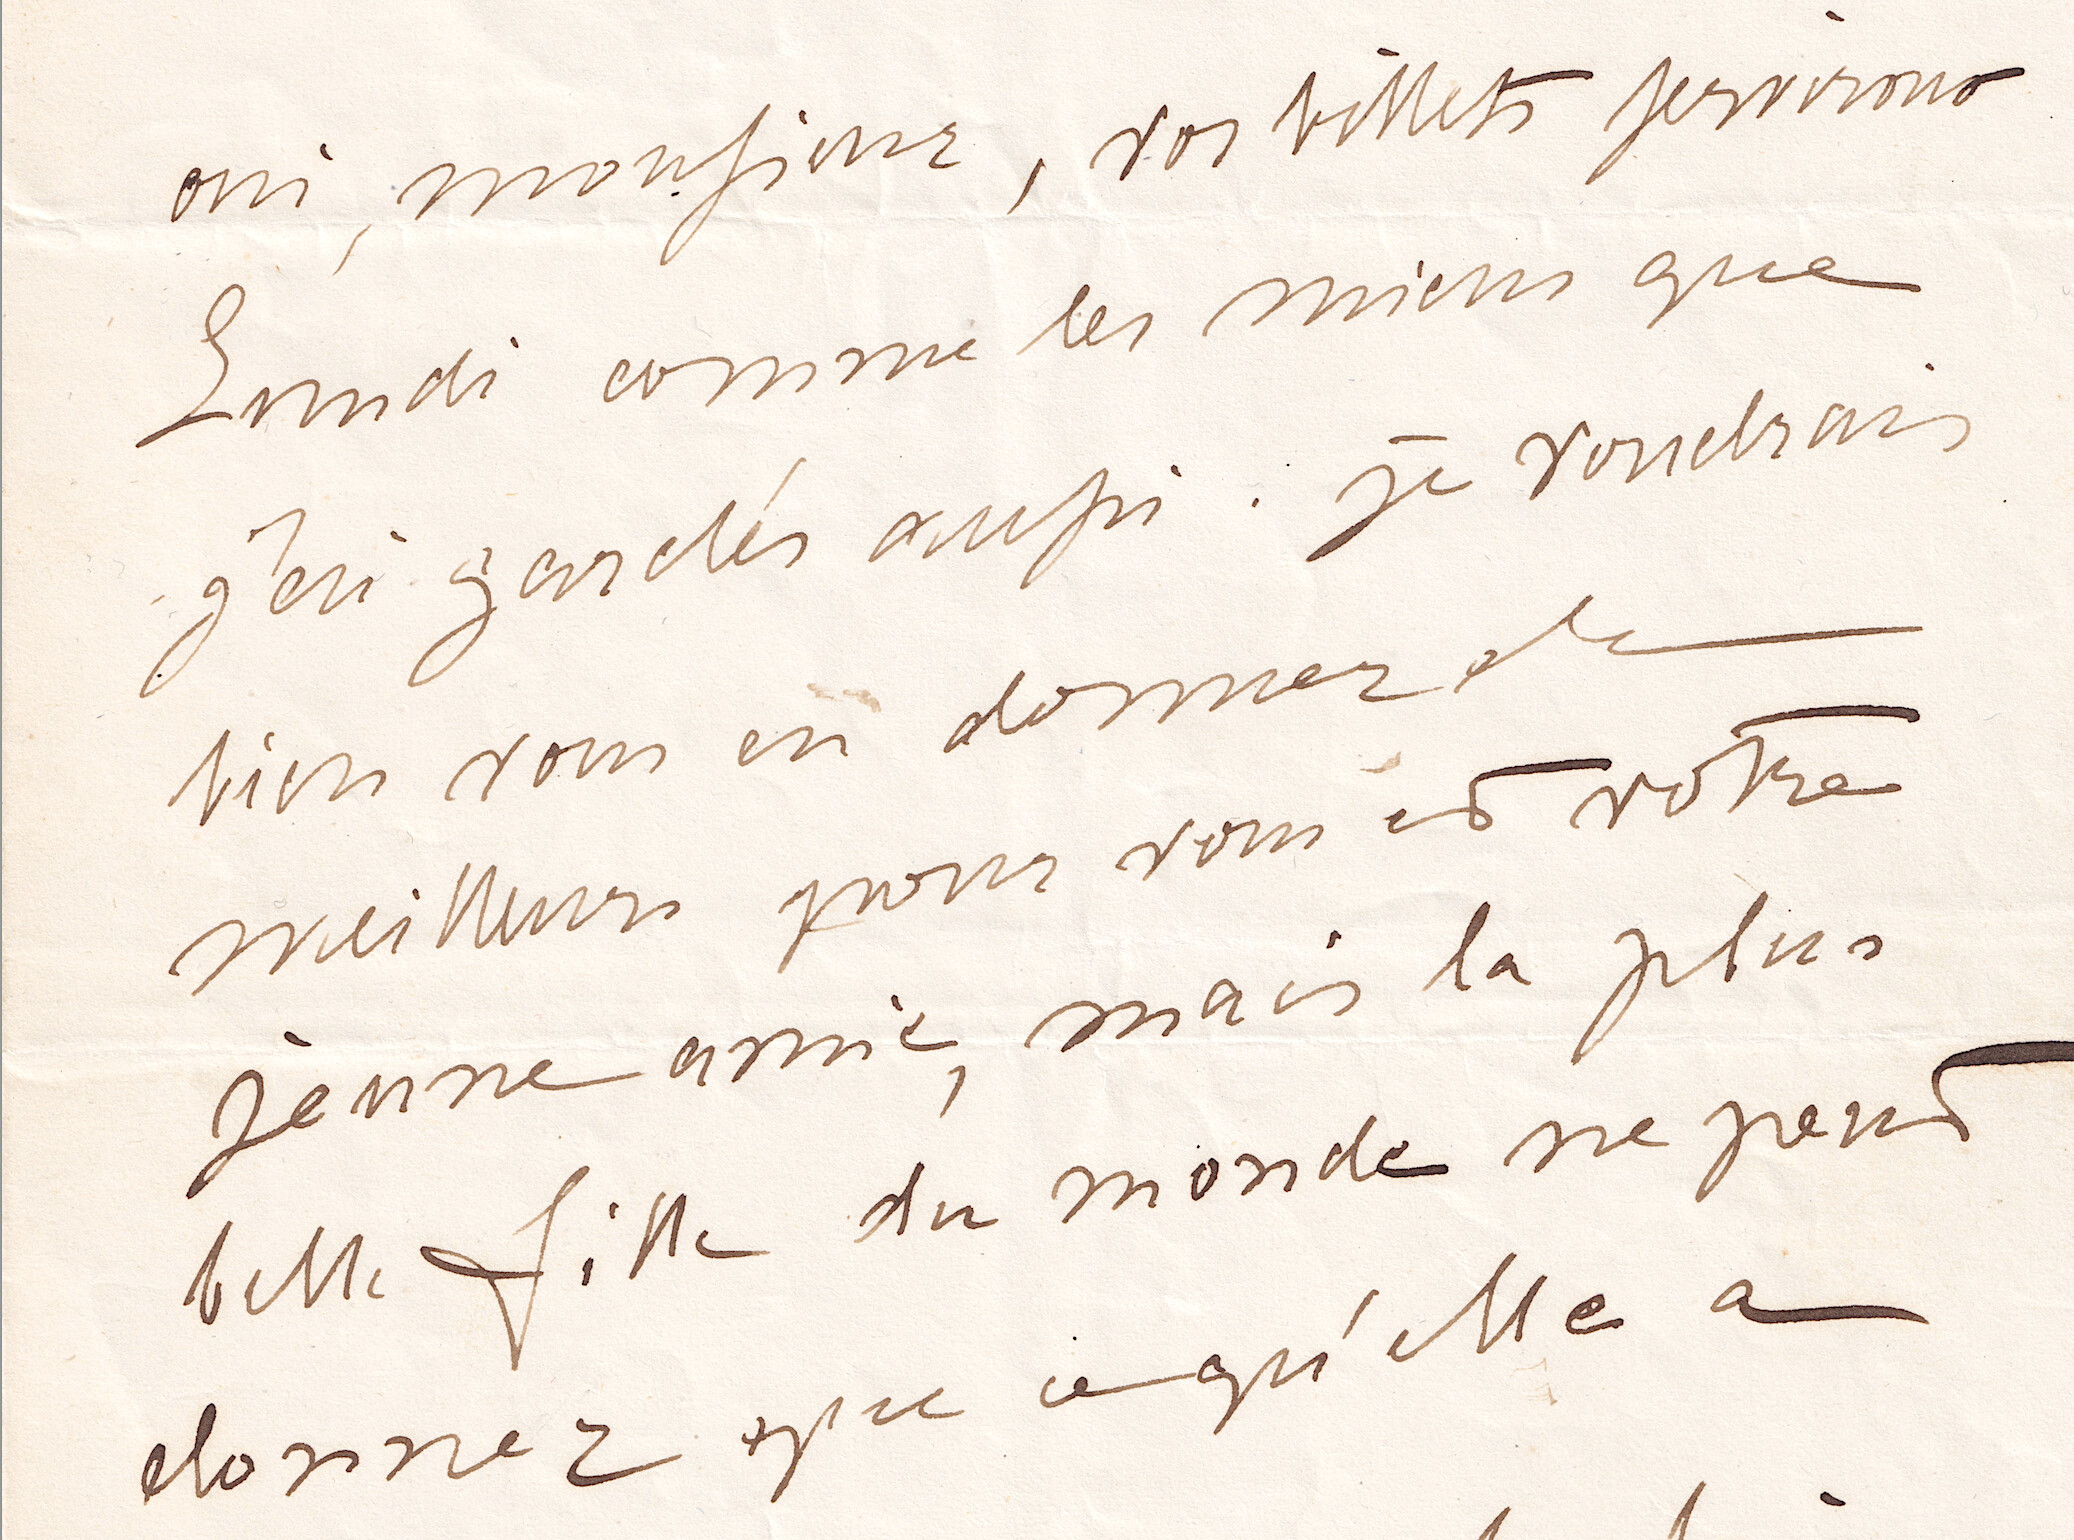 oui, monsieur, vos billets serviront
Lundi comme les miens que
j'ai gardés aussi. je voudrais
bien vous en donner de
meilleurs pour vous et vôtre
jeune amie, mais la plus
belle fille du monde ne peut
donner que ce qu'elle a